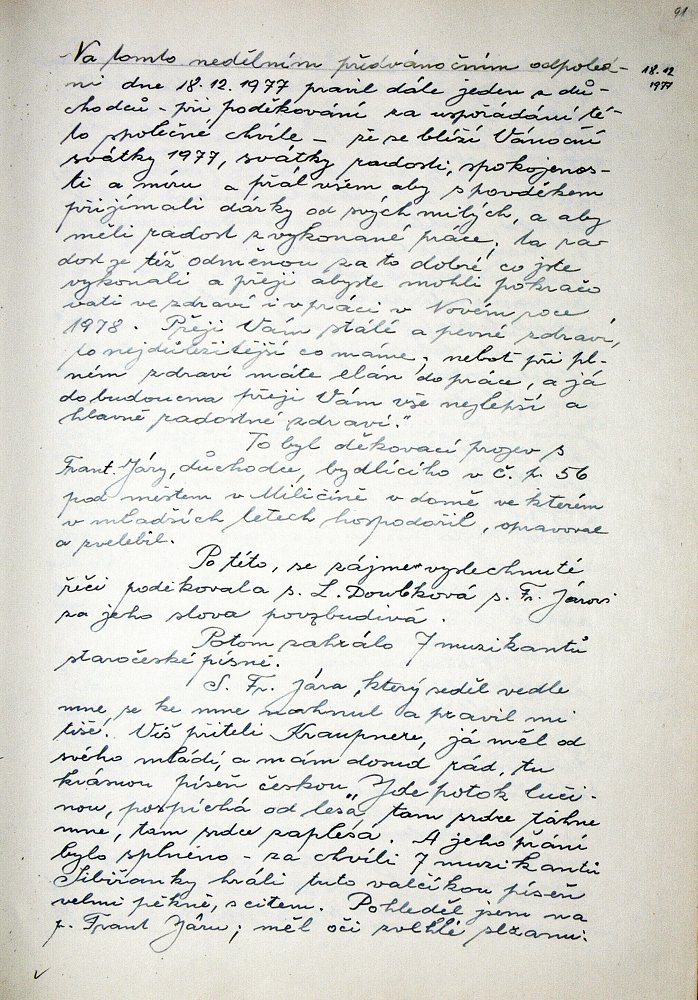 91
Na tomto nedělním předvánočním odpoled-
ni dne 18.12.1977 pravil dále jeden z dů-
chodců - při poděkování za uspořádání té-
to společné chvíle - že se blíží Vánoční
svátky 1977, svátky radosti, spokojenos-
ti a míru a přál všem aby s povděkem
přijímali dárky od svých milých, a aby
měli radost z vykonané práce; ta ra-
dost je též odměnou za to dobré, co jste
vykonali a přeji abyste mohli pokračo
vati ve zdraví i v práci v Novém roce
1978. Přeji Vám stálé a pevné zdraví,
to nejdůležitější co máme; neboť při pl-
ném zdraví máte elán do práce, a já
do budoucna přeji Vám vše nejlepší a
hlavně radostné zdraví."
To byl děkovací projev s
Frant. Járy, důchodce, bydlícího v č. p. 56
pod městem v Miličíně v domě ve kterém
v mladších letech hospodařil, opravoval
a zvelebil.
Po této, se zájmem vyslechnuté
řeči poděkovala s. L. Doubková s. Fr. Járovi
za jeho slova povzbudivá.
Potom zahrálo 7 muzikantů
staročeské písně.
S. Fr. Jára, který seděl vedle
mne, se ke mne nahnul a pravil mi
tiše: Víš příteli Kraupnere, já měl od
svého mládí, a mám dosud rád, tu
krásnou píseň českou „Jde potok luči-
nou, pospíchá od lesa, tam srdce táhne
mne, tam srdce zaplesá. A jeho přání
bylo splněno - za chvíli 7 muzikantů
Sibiřanky hráli tuto valčíkou píseň
velmi pěkně, s citem. Pohleděl jsem na
p. Frant Járu; měl oči zvlhlé slzami:
18.12
1977